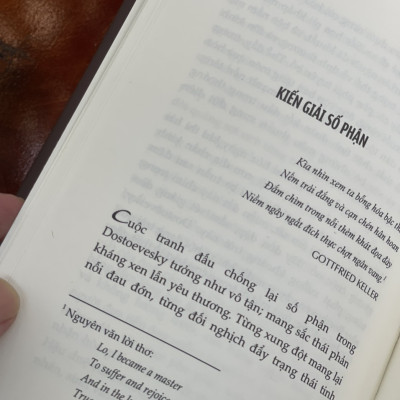 KIẾN GIẢI SỐ PHẬN
Kìa nhìn xem ta bỗng hóa bậc th
Nếm trái đắng và cạn chén hân hoan
Đắm chìm trong nỗi thèm khát đọa đày
Niềm ngây ngất đích thực chọn ngàn vang.¹
GOTTFRIED KELLER
Cuộc tranh đấu chống lại số phận trong
Dostoevesky tướng như vô tận; mang sắc thái phản
kháng xen lẫn yêu thương. Từng xung đột mang lại
nỗi đau đớn, từng đối nghịch đẩy trạng thái tinh
¹ Nguyên văn lời thơ:
Lo, I became a master
To suffer and rejoice
And in the h
Tru